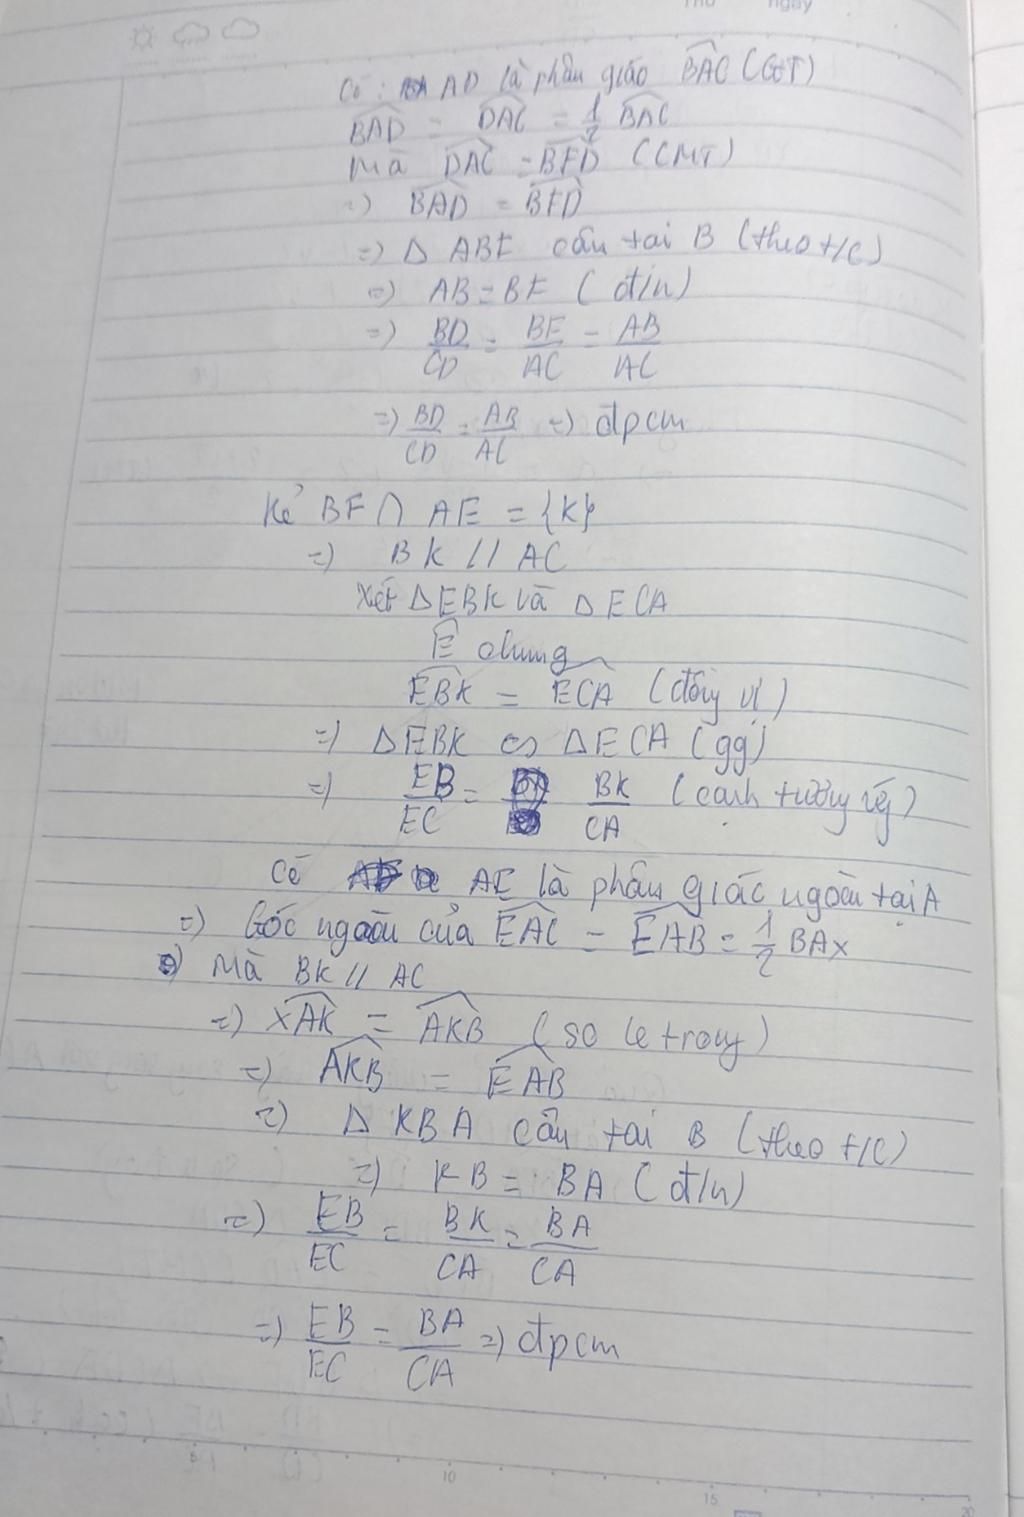 Thứ ngày
Có: AD là phân giác BAC (GT)
BAD = DAC = 1/2 BAC
Mà DAC = BFD (CMT)
=) BAD = BFD
=) Δ ABF cân tại B (theo t/c)
=) AB = BF (đ/n)
=) BD/CD = BF/AC = AB/AC
=) BD/CD = AB/AC =) đpcm
Kẻ BF ∩ AE = {K}
=) BK // AC
Xét ΔEBK và ΔECA
E chung
EBK = ECA (đồng vị)
=) ΔEBK ∽ ΔECA (gg)
=) EB/EC = BK/CA (cạnh tương ứng)
Có AE là phân giác ngoài tại A
=) Góc ngoài của EAC = EAB = 1/2 BAx
Mà BK // AC
=) xAK = AKB (so le trong)
=) AKB = EAB
=) Δ KBA cân tại B (theo t/c)
=) KB = BA (đ/n)
=) EB/EC = BK/CA = BA/CA
=) EB/EC = BA/CA =) đpcm
10
15
20